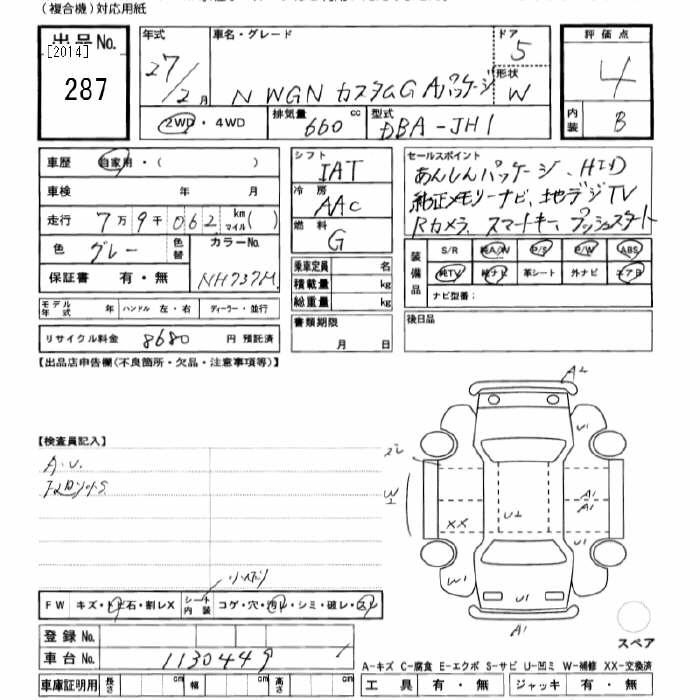 (複合機)対応用紙
出品No.
[2014]
287
年式 27/2月
車名・グレード N WGN カスタムG Aパッケージ
ドア 5
形状 W
2WD・4WD
排気量 660 cc
型式 DBA-JH1
評価点 4
内装 B
車歴 自家用・( )
車検 年 月
走行 7万9千062 km マイル( )
色 グレー 色替 カラーNo. NH737M
保証書 有・無
モデル年式 年 ハンドル 左・右 ディーラー・並行
リサイクル料金 8680 円 預託済
シフト IAT
冷房 AAC
燃料 G
乗車定員 名
積載量 kg
総重量 kg
書類期限
月 日
セールスポイント
あんしんパッケージ、HID
純正メモリーナビ、地デジTV
Rカメラ、スマートキー、プッシュスタート
装備品 S/R 純A/W P/S P/W ABS
純TV 純ナビ 革シート 外ナビ エアB
ナビ型番:
後日品
【出品店申告欄(不良箇所・欠品・注意事項等)】
【検査員記入】
A.U.
FW キズ・トビ石・割レX シート内装 コゲ・穴・汚レ・シミ・破レ・スレ
登録No.
車台No. 1130449
車庫証明用 長さ cm 幅 cm 高さ cm
A2
U1
W
A1
A1
XX
U2
U1
W1
U1
A1
スペア
A-キズ C-腐食 E-エクボ S-サビ U-凹ミ W-補修 XX-交換済
工具 有・無 ジャッキ 有・無